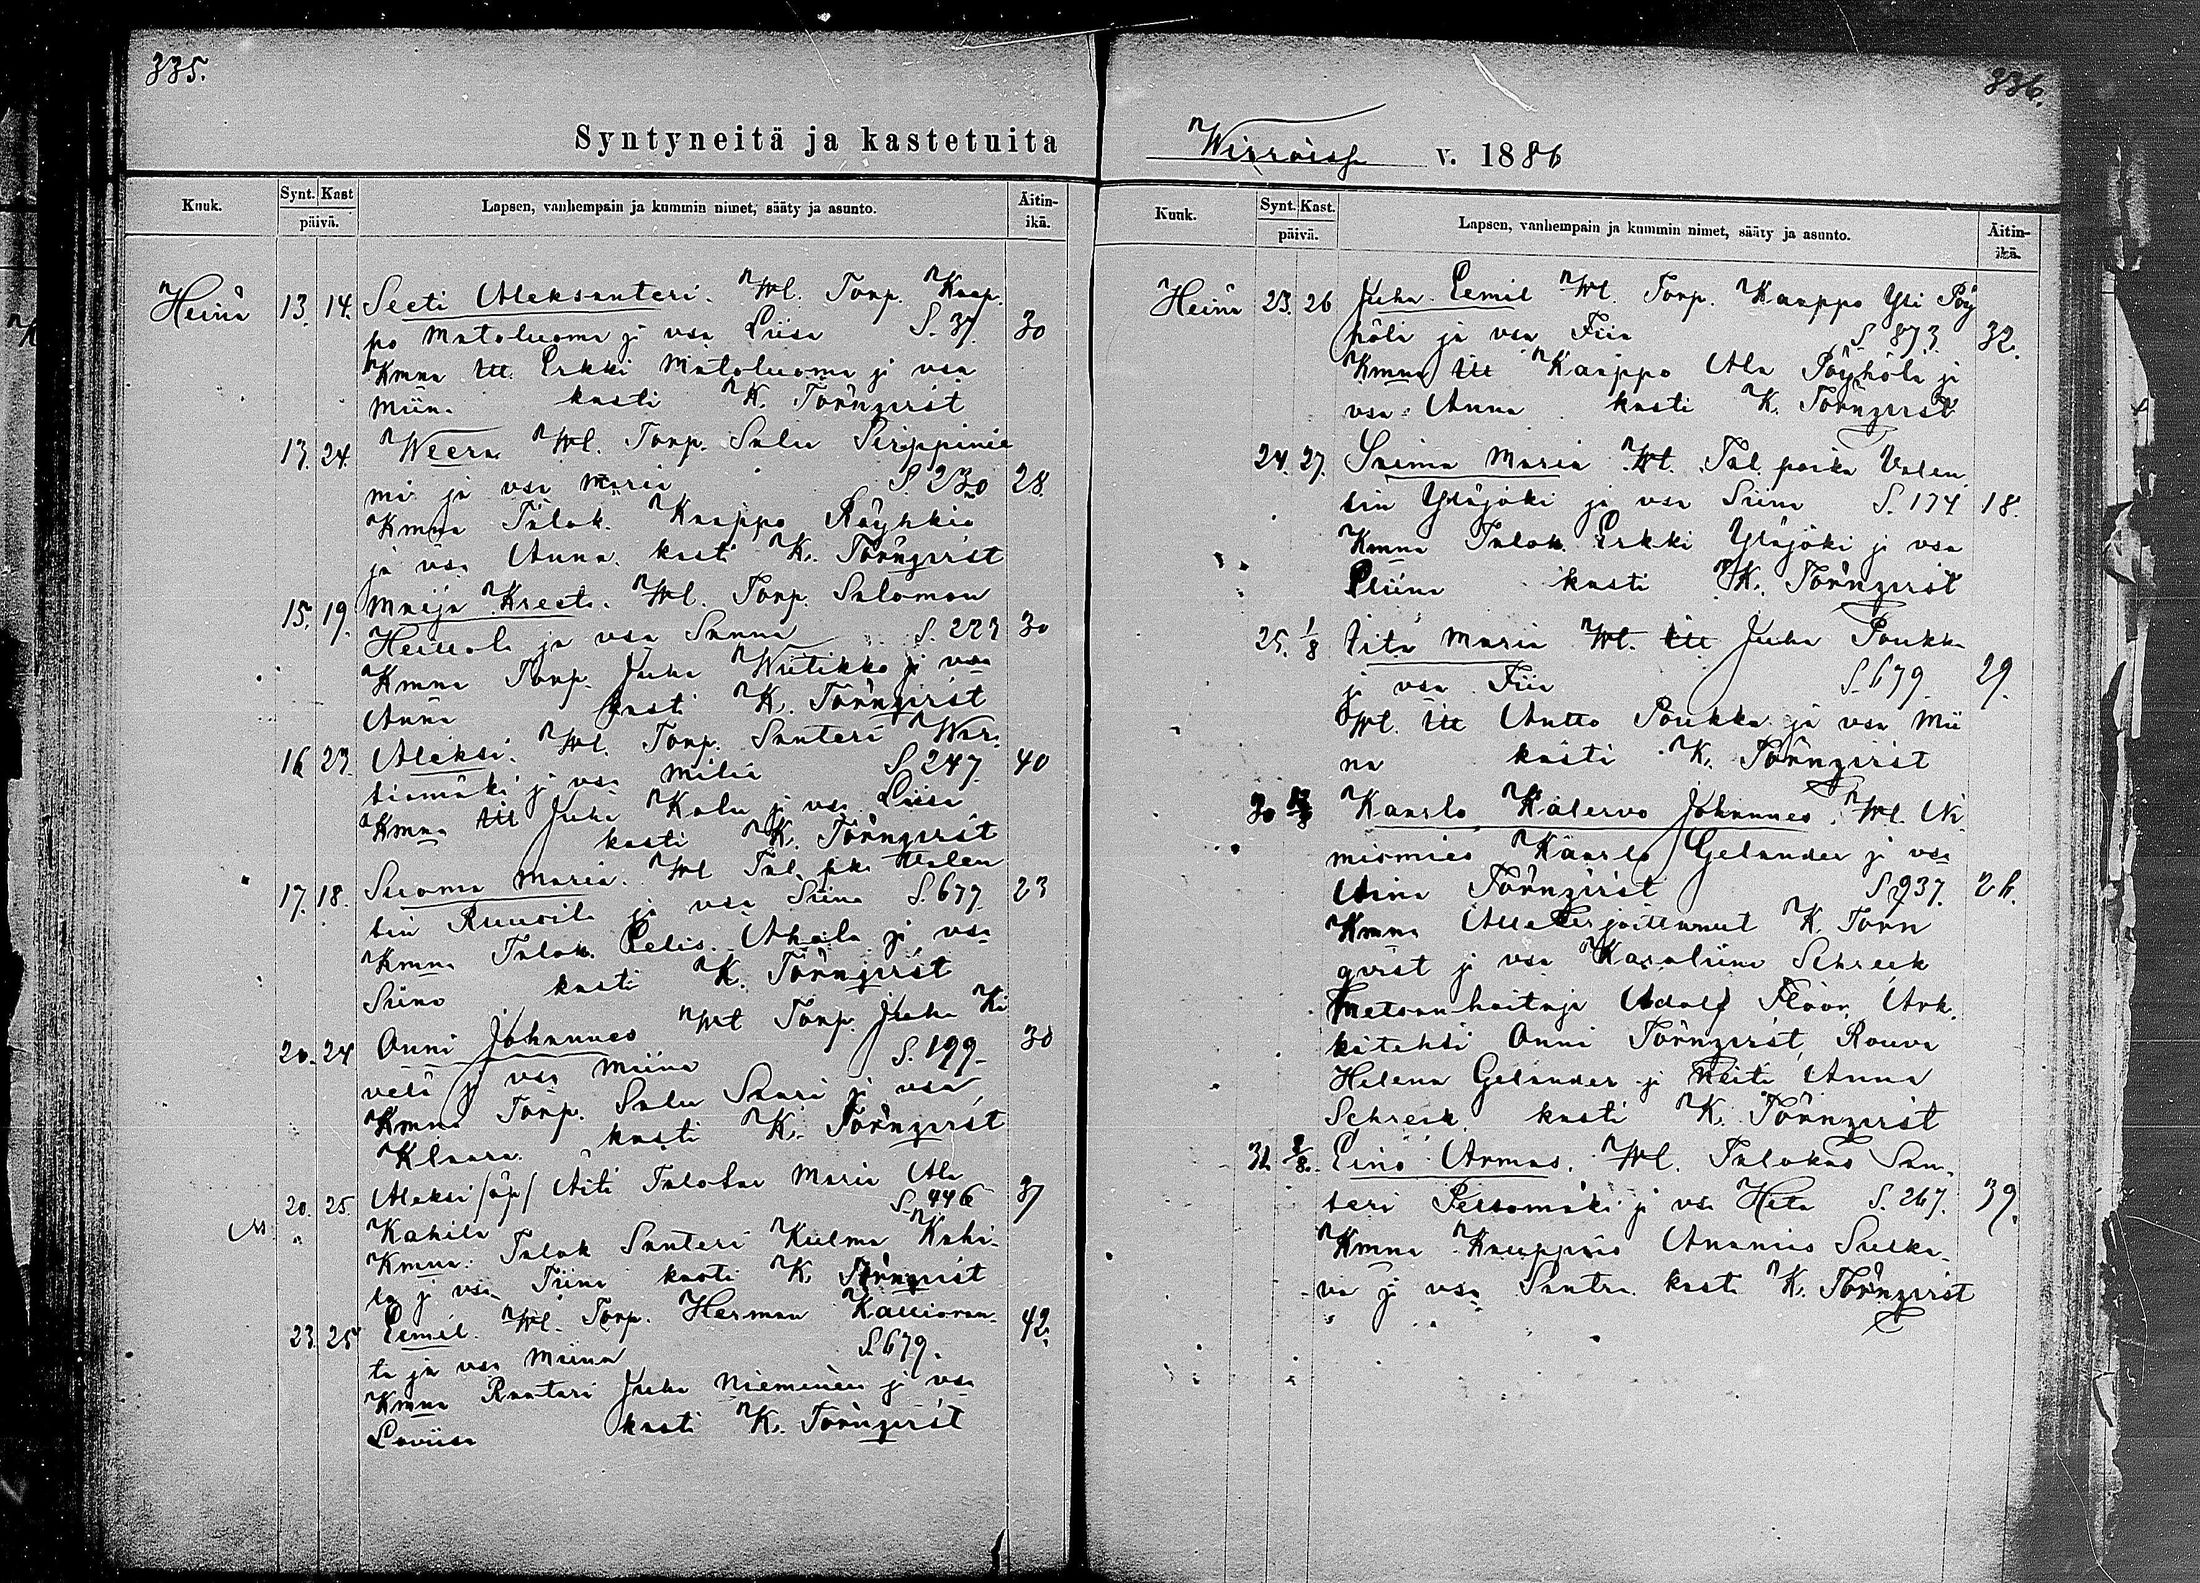 335.
Syntyneitä ja kastetuita
Kuuk.
Synt. Kast
päivä.
Lapsen, vanhempain ja kummin nimet, sääty ja asunto.
Äitin-
ikä.
Heinä 13. 14. Seeti Aleksanteri. Wl. Torp. Kaap-
po Matoluoma ja vsa Liisa S. 37. 30
Kmna Itl. Erkki Matoluoma ja vsa
Miina. kasti K. Törnqvist
13. 24. Weera Wl. Torp. Salu
mi ja vsa Maria S. 230 28.
Kmna Talok. Kaappo Röyhkiö
ja vsa Anna. kasti K. Törnqvist
15. 19. Maija Kreeta. Wl. Torp. Salomon
ja vsa Sanna S. 223 30
Kmna Torp. Juha Wiitikko ja vsa
Anna kasti K. Törnqvist
16 23. Aleksi. Wl. Torp. Santeri War-
tiamäki ja vsa Milia S. 247. 40
Kmna Itl Juha Kalu ja vsa Liisa
kasti K. Törnqvist
17. 18. Suoma Maria. Wl Tal. pka Valen
tin Ruusila ja vsa Siina S. 677. 23
Kmna Talok. Eelis Ahola ja vsa
Siina kasti K. Törnqvist
20. 24 Onni Johannes Wl Torp. Juha Ki
velä ja vsa Miina S. 199. 30
Kmna Torp. Salu Saari ja vsa
Klaara. kasti K. Törnqvist
20. 25. Aleksi /äp/ Äiti Maria Ala
Kahila S. 446 37
Kmna: Talok Santeri Kulma Kahi-
la ja vsa Tiina kasti K. Törnqvist
23. 25 Eemil. Wl. Torp. Herman Kallioran-
ta ja vsa Miina S. 679. 42.
Kmna Raatari Juha Nieminen ja vsa
Loviisa kasti K. Törnqvist
336.
Wirroissa v. 1886
Kuuk.
Synt. Kast.
päivä.
Lapsen, vanhempain ja kummin nimet, sääty ja asunto.
Äitin-
ikä.
Heinä 23. 26 Juha Eemil Wl. Torp. Kaappo Yli Pöy
hölä ja vsa Fiia S. 873. 32.
Kmna Itl Kaappo Ala Pöyhölä ja
vsa Anna kasti K. Törnqvist
24. 27. Saima Maria Wl. Tal. poika Valen
tin Yläjoki ja vsa Siina S. 174 18.
Kmna Talok. Erkki Yläjoki ja vsa
Eliina kasti K. Törnqvist
25. 1/8 Iita Maria Wl. Itl Juha Poukka
ja vsa Fiia S. 679 29.
Wl. Itl Antto Poukka ja vsa Mii
na kasti K. Törnqvist
30 Kaarlo Kalervo Johannes. Wl. Ni-
mismies Kaarlo Gelander ja vsa
Aina Törnqvist S. 937. 26.
Kmna Allekirjoittanut K. Törn
qvist ja vsa Karoliina Schreck
Metsänhoitaja Adolf Flöör, Ark-
kitehti Onni Törnqvist, Rouva
Helena Gelander ja Neiti Anna
Schreck. kasti K. Törnqvist
31. 2/8. Eino Armas. Wl. Talokas San-
teri Peltomäki ja vsa Heta S. 267. 39.
Kmna Kauppias Ananias Sulka-
va ja vsa Santra kasti K. Törnqvist